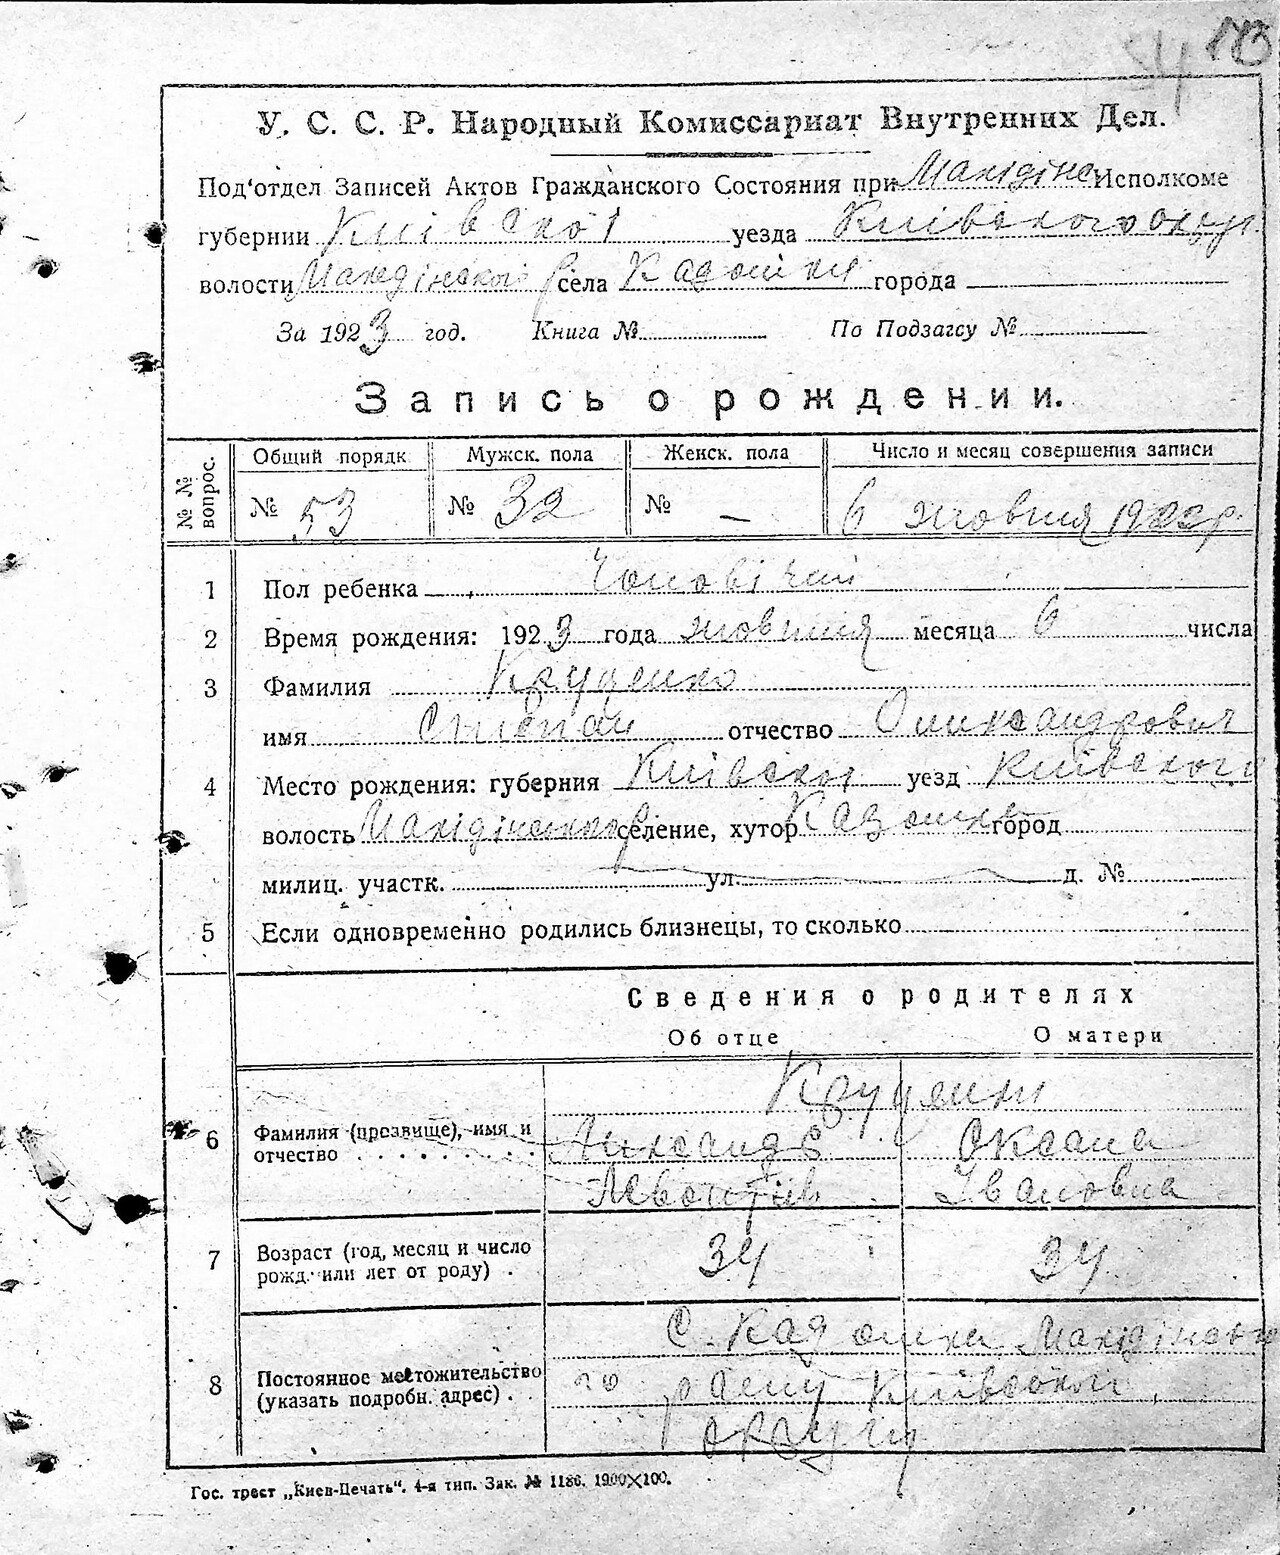 113
У. С. С. Р. Народный Комиссариат Внутренних Дел.
Под'отдел Записей Актов Гражданского Состояния при Исполкоме
губернии Київської уезда Київского округ
волости села города
За 1923 год. Книга № По Подзагсу №
Запись о рождении.
№ № вопрос. Общий порядк Мужск. пола Женск. пола Число и месяц совершения записи
№ 53 № 32 № — 6 жовтня 192 р.
1 Пол ребенка Чоловічий
2 Время рождения: 1923 года жовтня месяца 6 числа
3 Фамилия
имя Степан отчество Олександрович
4 Место рождения: губерния Київськ уезд Київского
волость селение, хутор город
милиц. участк. ул. д. №
5 Если одновременно родились близнецы, то сколько
Сведения о родителях
Об отце О матери
6 Фамилия (прозвище), имя и отчество Оксана
Івановна
7 Возраст (год, месяц и число рожд. или лет от роду) . 34 34
8 Постоянное местожительство (указать подробн. адрес) . . с.
го району Київської
округи
Гос. трест „Киев-Печать“. 4-я тип. Зак. № 1186. 1900×100.